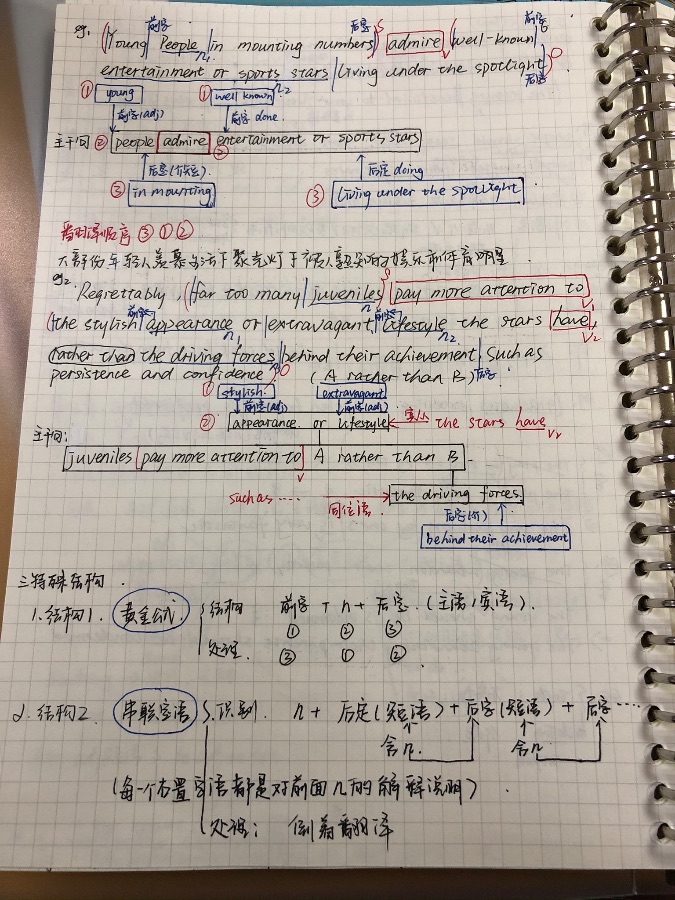 eg. (Young People in mounting numbers) admire (well-known
前定 后定 S 前定
n1
entertainment or sports stars living under the spotlight) O
n2 后定
① young ① well known
前定(adj) 前定 done.
主干句 ② people admire entertainment or sports stars
②
后定(介短). 后定 doing
③ in mounting ③ living under the spotlight
翻译顺序 ③①②
大部份年轻人羡慕生活下聚光灯于被人熟知的娱乐和体育明星.
eg2. Regrettably, (far too many juveniles) S pay more attention to
n v1
(the stylish appearance or extravagant lifestyle the stars have,
前定 n1 前定 n2 v2
rather than the driving forces behind their achievement such as
n O
persistence and confidence. (A rather than B) 后定
① stylish. extravagant
前定(adj) 前定(adj)
② appearance. or lifestyle the stars have
v2
主干句:
juveniles pay more attention to A rather than B.
v
such as ····· 同位语 the driving forces.
后定(介)
behind their achievement
三特殊结构.
1.结构1. 黄金公式. 结构 前定 + n + 后定. (主语/宾语).
① ② ③
处理. ③ ① ②
2.结构2 串联定语 识别. n + 后定(短语) + 后定(短语) + 后定·····
含n. 含n
(每一个右置定语都是对前面n的解释说明)
处理: 倒着翻译